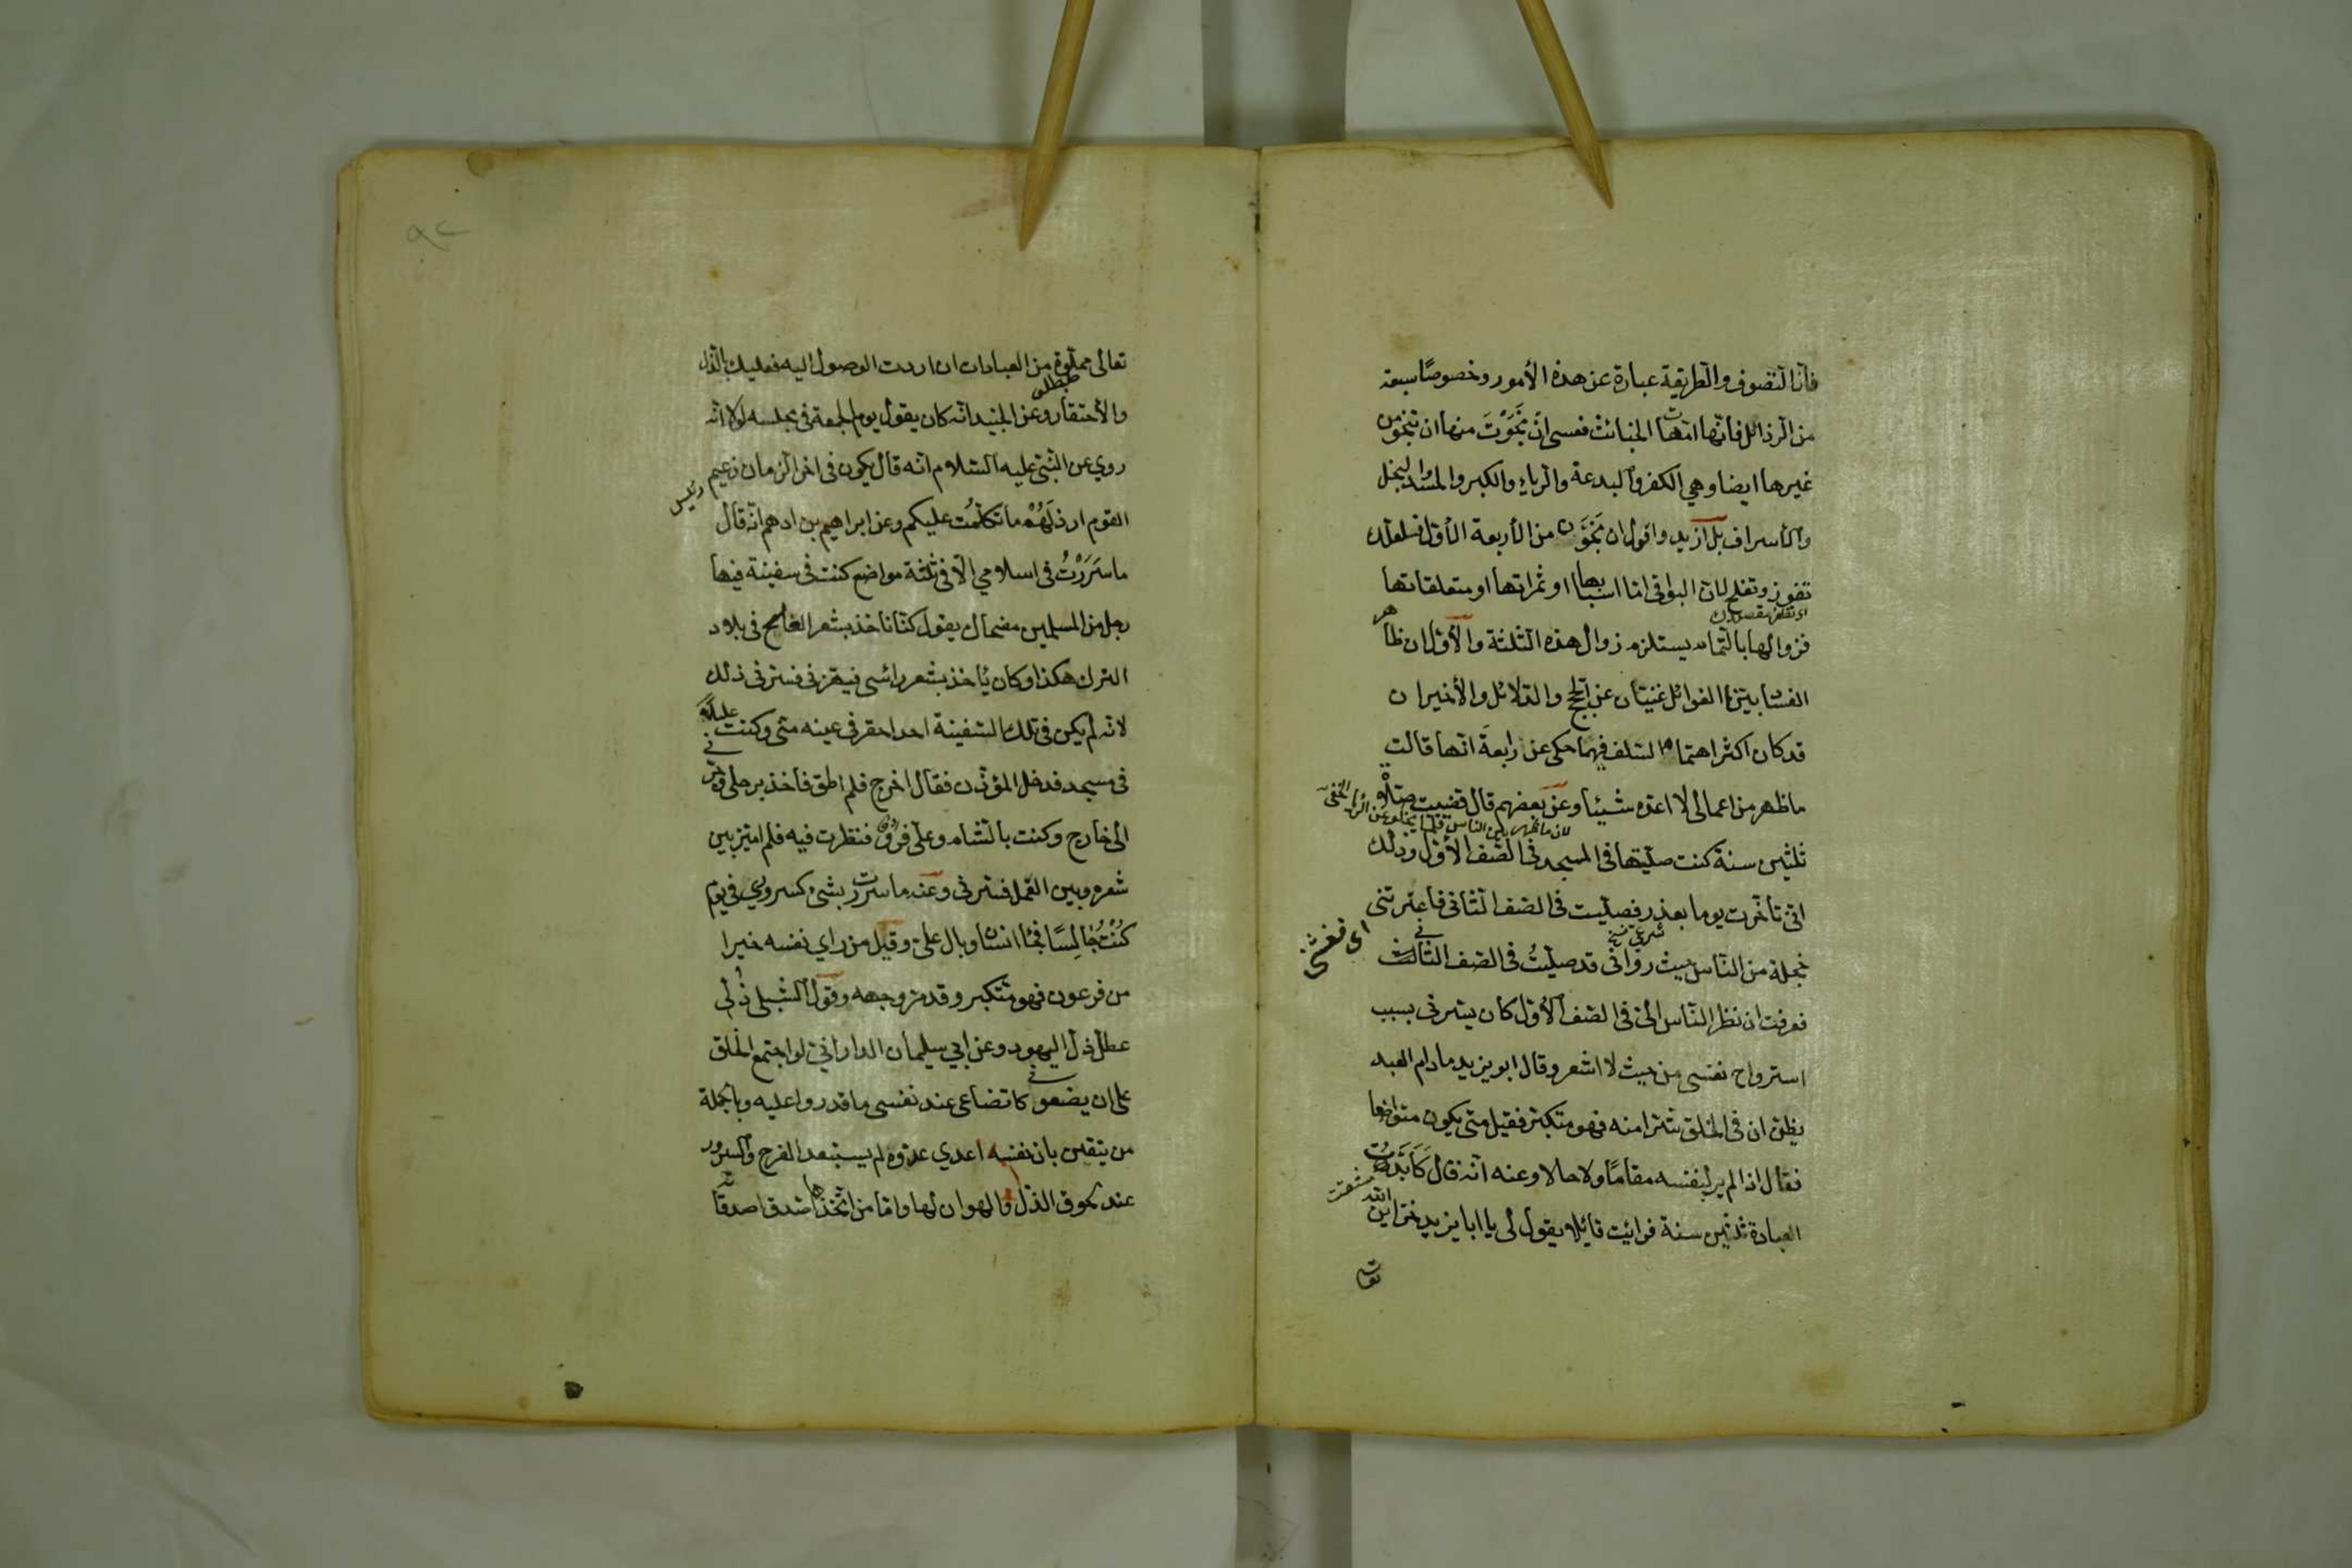 فانّ التصوف والطريقة عبارة عن هذه الأمور وخصوصًا سبعة
من الرذائل فانّها امّهات الخبائث فعسى انّ نَجَوْتَ منها ان تنجو من
غيرها ايضا وهي الكفر والبدعة والرياء والكبر والحسد والبخل
والأسراف بل ازيد واقول ان نَجَوْتَ من الأربعة الأول فلعلك
تفوز وتفلح لان البواقي امّا اسبابها او ثمراتها او متعلقاتها
فزوالها بالتمام يستلزم زوال هذه الثلثة والأولان ظاهر
الفساد بيّنا الغوائل غنيّان عن الحج والدلائل والأخيران
قد كان اكثر اهتمام السلف فيهما حكى عن رابعة انّها قالت
ما ظهر من اعمالى لا اعدّه شيئا وعن بعضهم قال قضيت صلاة
لان ما ظهر بين الناس قلما يخلو عن الرياء الخفى
ثلثين سنة كنت صلّيتها فى المسجد فى الصّف الأوّل وذلك
انّى تأخّرت يوما بعذر فصلّيت فى الصف الثانى فاعترتنى
اى فغشتى
شرعى
خجلة من النّاس حيث رؤانى قد صلّيتُ فى الصف الثانى
فعرفت ان نظر النّاس الىّ فى الصف الأوّل كان يسّرنى بسبب
استرواح نفسى من حيث لا اشعر وقال ابو يزيد ما دام العبد
يظن ان فى الخلق شرّا منه فهو متكبّر فقيل متى يكون متواضعا
فقال اذا لم ير لنفسه مقامًا ولا حالا وعنه انّه قال كَابَدْتُ
العبادة ثلثين سنة فرائيت قائلا يقول لى يا ابا يزيد خزائن الله
تعالى
٩٢
تعالى مملوة من العبادات ان اردت الوصول اليه فعليك بالذل
مطلب
والأحتقار وعن الجنيد انّه كان يقول يوم الجمعة فى مجلسه لولا انّه
روي عن النّبىّ عليه السّلام انّه قال يكون فى اخر الزمان زعيم
رئيس
القوم ارذلَهُمْ ما تكلّمْتُ عليكم وعن ابراهيم بن ادهم انّه قال
ما سَرَرْتُ فى اسلامي الّا فى ثلثة مواضع كنت فى سفينة فيها
رجل من المسلمين مضحاك يقول كنّا نأخذ بشعر العلج فى بلاد
الترك هكذا وكان يأخذ بشعر رائسى فيهزنى فسرنى ذلك
لانّه لم يكن فى تلك السّفينة احد احقر فى عينه منّى وكنت عليلا
فى مسجد فدخل المؤذّن فقال اخرج فلم اطق فاخذ برجلى وجرّنى
الى خارج وكنت بالشام وعلىّ فرو فنظرت فيه فلم امتيز بين
شعره وبين القمل فسرنى وعنه ما سررت بشىء كسروري فى يوم
كُنْتُ جَالِسًا فجاء انسان وبال علىّ وقيل من راي نفسه خيرا
من فرعون فهو متكبر وقد مرّ وجهه وقول الشبلى ذُلّى
عطّل ذلّ اليهود وعن ابي سليمان الداراني لو اجتمع الخلق
على ان يضعونى كاتضاعى عند نفسى ما قدروا عليه وبالجملة
من يتقن بان نفسه اعدي عدّوه لم يستبعد الفرح والسرور
عند لحوق الذّل والهوان لها وامّا من اتّخذها صديقا صدقا